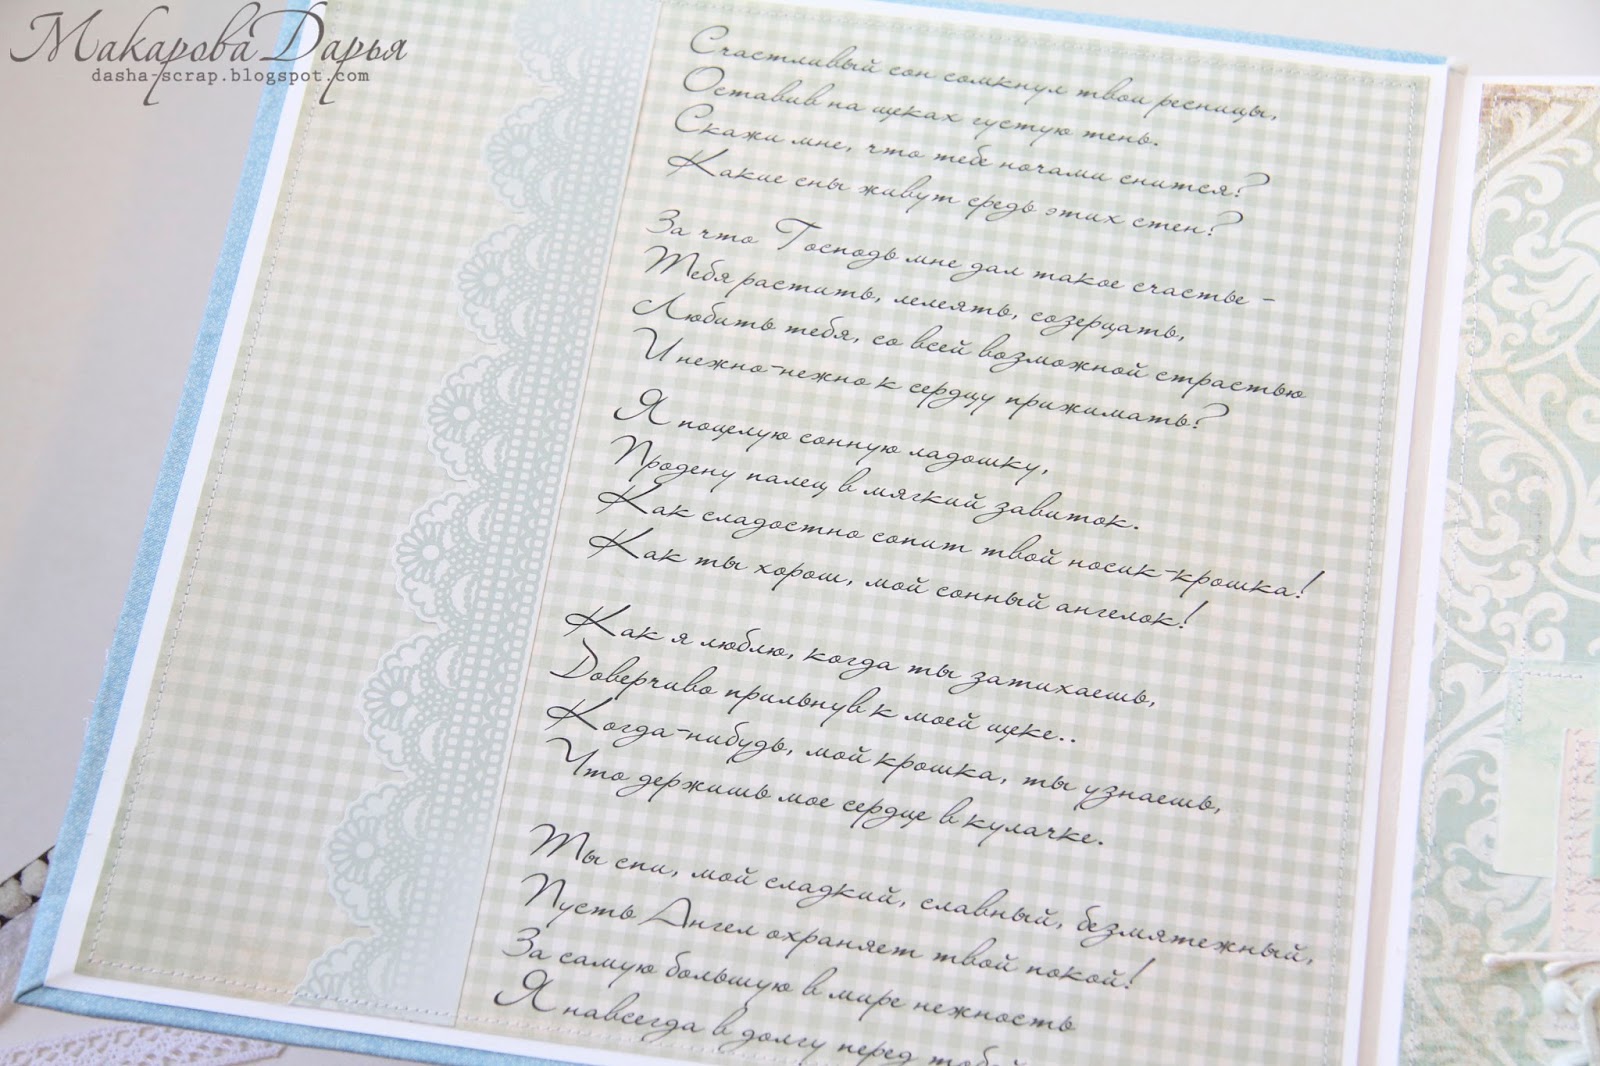 Макарова Дарья
dasha-scrap.blogspot.com
Счастливый сон сомкнул твои ресницы,
Оставив на щеках густую тень.
Скажи мне, что тебе ночами снится?
Какие сны живут средь этих стен?
За что Господь мне дал такое счастье -
Тебя растить, лелеять, созерцать,
Любить тебя, со всей возможной страстью
И нежно-нежно к сердцу прижимать?
Я поцелую сонную ладошку,
Продену палец в мягкий завиток.
Как сладостно сопит твой носик-крошка!
Как ты хорош, мой сонный ангелок!
Как я люблю, когда ты затихаешь,
Доверчиво прильнув к моей щеке..
Когда-нибудь, мой крошка, ты узнаешь,
Что держишь мое сердце в кулачке.
Ты спи, мой сладкий, славный, безмятежный,
Пусть Ангел охраняет твой покой!
За самую большую в мире нежность
Я навсегда в долгу перед тобой